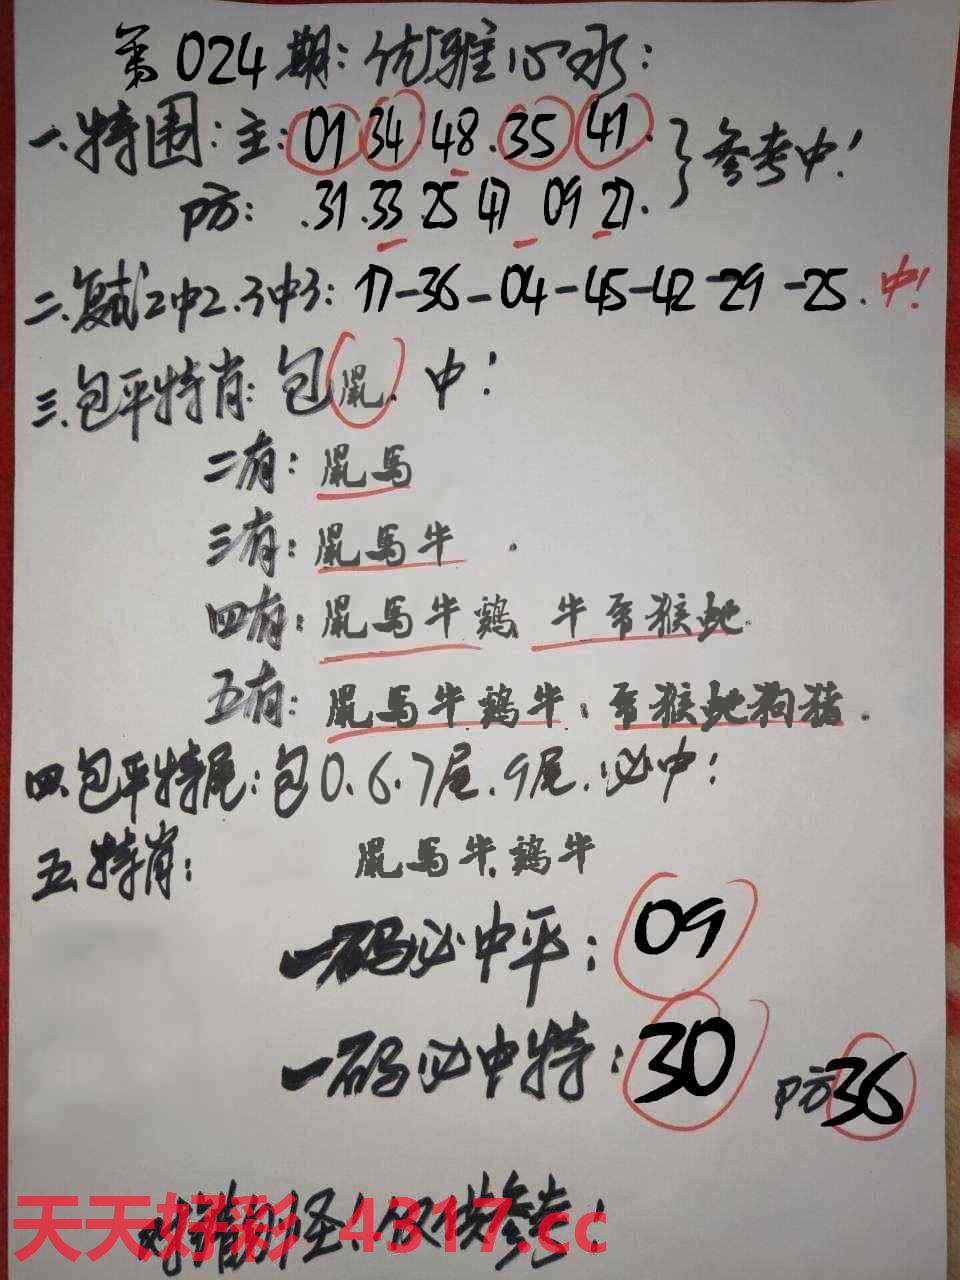 第024期:优雅心水:
一.特围:主:01 34.48.35 41.}参考中!
防:.31.33 25 47 09 27.
二.复试2中2.3中3:17-36-04-45-42-29-25.中!
三.包平特肖:包鼠.中!
二有:鼠馬
三有:鼠馬牛.
四有:鼠馬牛鷄 牛 猴蛇.
五有:鼠馬牛鷄牛: 猴蛇狗猪.
四.包平特尾:包0.6.7尾.9尾.必中!
五.特肖: 鼠馬牛.鷄牛
一码必中平:09
一码必中特:30 防36
对错别怪!仅供参考!
天天好彩 4317.cc